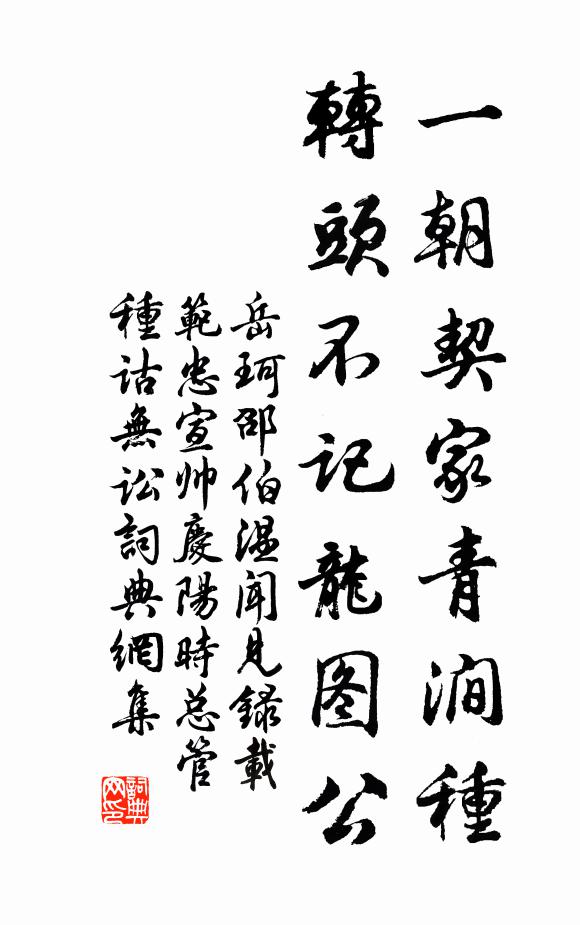 一朝契家青澗種
轉頭不记龍图公
岳珂邵伯温闻见録載
範忠宣帅慶陽時总管
種诂無讼詞典網集
詞典网印